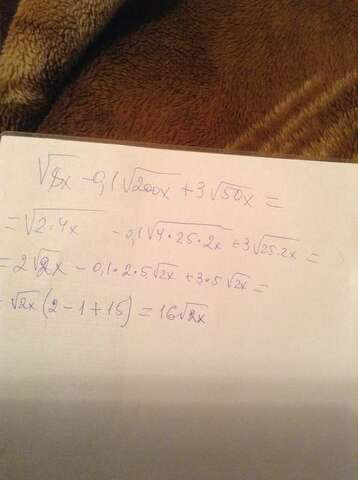 √8x − 0,1√200x + 3√50x =
= √2·4x − 0,1√4·25·2x + 3√25·2x =
= 2√2x − 0,1·2·5√2x + 3·5√2x =
= √2x (2 − 1 + 15) = 16√2x